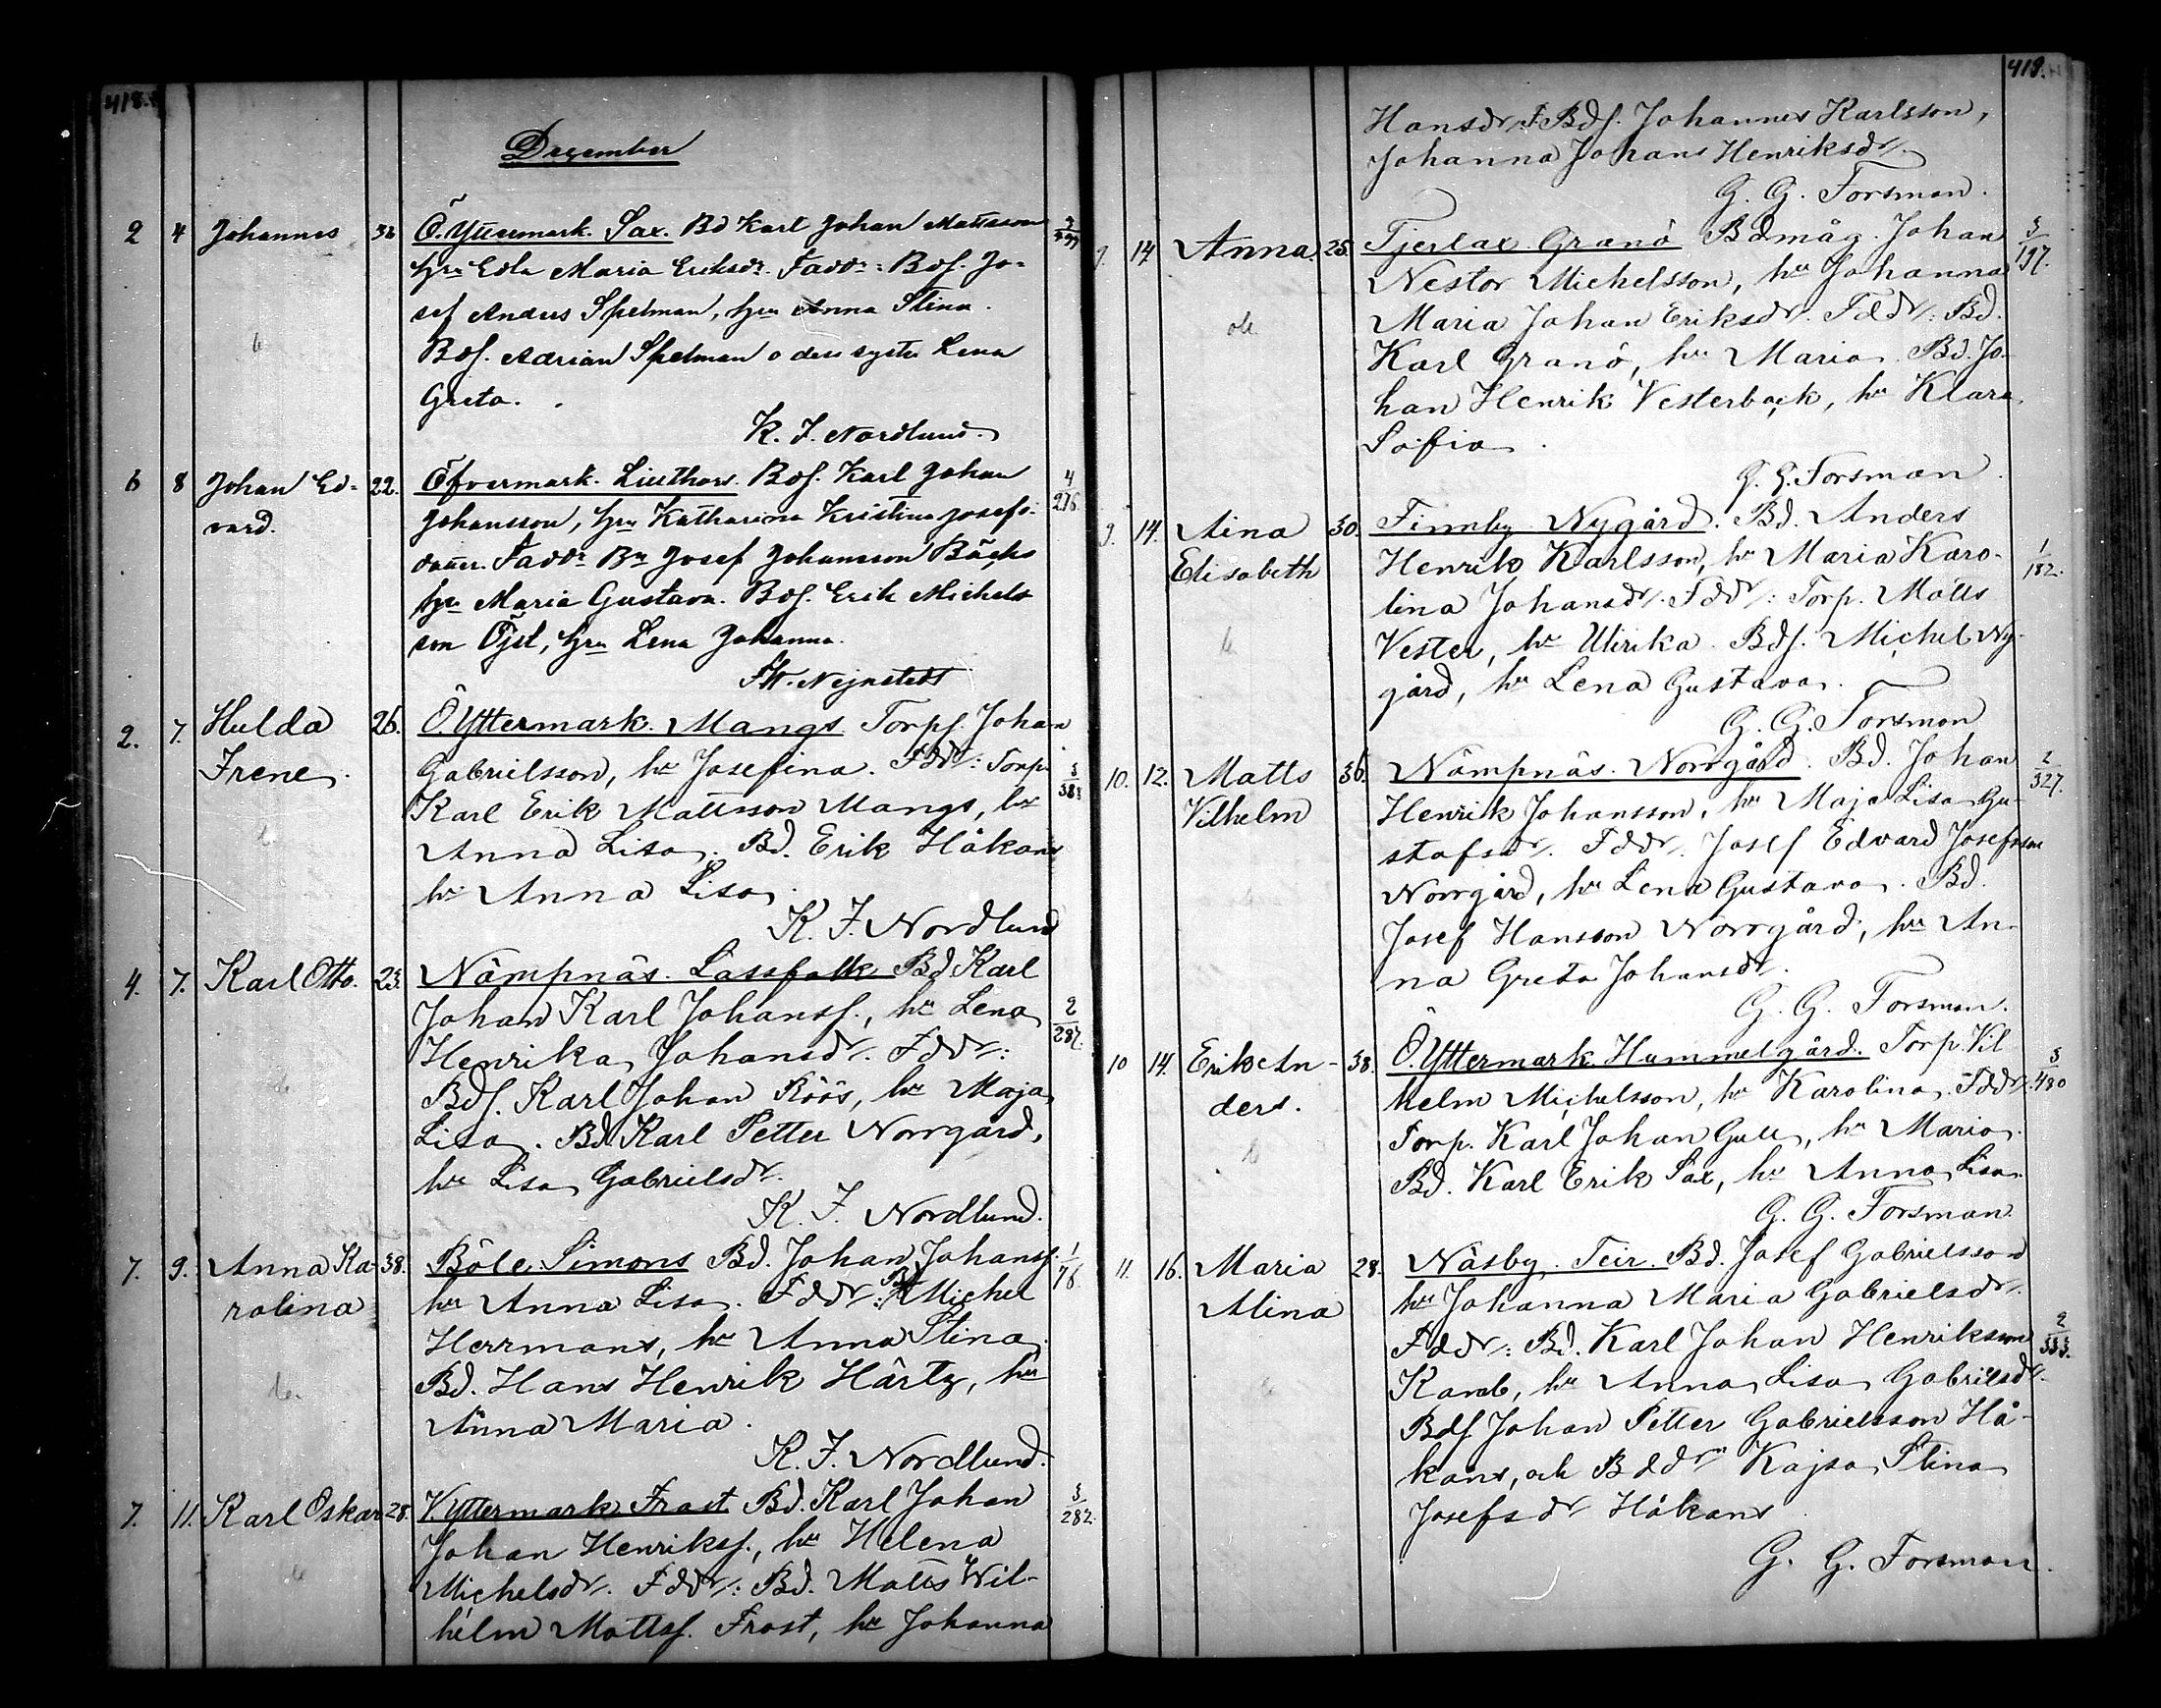 418.
December
2 4 Johannes 36 Ö. Yttermark. Sax. Bd Karl Johan Mattsson
hru Edla Maria Eriksdr. Faddr: Bdf. Jo-
sef Anders Spelman, hru Anna Stina.
Bdf. Adrian Spelman o dess syster Lena
Greta.
K. J. Nordlund.
6 8 Johan Ed- 22. Öfvermark. Liuthars. Bdf. Karl Johan 4/276
vard. Johansson, hru Katharina Kristina Josefs-
dotter. Faddr Bn Josef Johansson Bäcks
hru Maria Gustava. Bdf. Erik Michels
son Öjst, hru Lena Johanna.
Nejnstedt
2. 7. Hulda 26. Ö. Yttermark. Mangs. Torpf. Johan
Irene. Gabrielsson, hu Josefina. Fddr: Torp.
Karl Erik Mattsson Mangs, hu
Anna Lisa. Bd. Erik Håkans
hu Anna Lisa
K. J. Nordlund
4. 7. Karl Otto. 23. Nämpnäs. Lassfolk Bd Karl
Johan Karl Johansf., hu Lena 2/287.
Henrika Johansdr. Fddr:
Bdf. Karl Johan Röös, hu Maja
Lisa. Bd. Karl Petter Norrgård,
hu Lisa Gabrielsdr.
K. J. Nordlund.
7. 9. Anna Ka- 38. Böle Simons Bd. Johan Johansf. 1/76
rolina hu Anna Lisa. Fddr: Michel
Herrmans, hu Anna Stina.
Bd. Hans Henrik Härtz, hu
Anna Maria.
K. J. Nordlund.
7. 11. Karl Oskar 28. V. Yttermark Frost Bd. Karl Johan 3/282.
Johan Henriksf., hu Helena
Michelsdr. Fddr: Bd. Matts Wil-
helm Mattsf. Frost, hu Johanna
419.
Hansdr. Bdf. Johannes Karlsson,
Johanna Johans Henriksdr.
G. G. Forsman.
9. 14. Anna. 25. Tjerlax. Granö Bdmåg. Johan 3/197.
Nestor Michelsson, hu Johanna
Maria Johan Eriksdr. Fddr: Bd.
Karl Granö, hu Maria. Bd. Jo-
han Henrik Vesterback, hu Klara
Sofia.
G. G. Forsman.
9. 14. Aina 30. Finnby Nygård. Bd. Anders
Elisabeth Henrik Karlsson, hu Maria Karo- 1/182.
lina Johansdr. Fddr: Torp. Matts
Vester, hu Ulrika. Bdf. Michel Ny-
gård, hu Lena Gustava.
G. G. Forsman
10. 12. Matts 36. Nämpnäs. Norrgård. Bd. Johan 2/327.
Vilhelm Henrik Johansson, hu Maja Lisa Gu-
stafsdr. Fddr. Josef Edvard Josefsson
Norrgård, hu Lena Gustava. Bd.
Josef Hansson Norrgård, hu An-
na Greta Johansdr.
G. G. Forsman.
10 14. Erik An- 38. Ö. Yttermark. Hummelgård. Torp. Vil
ders. helm Michelsson, hu Karolina. Fddr: 3/480
Torp. Karl Johan Gull, hu Maria.
Bd. Karl Erik Sax, hu Anna Lisa.
G. G. Forsman.
11. 16. Maria 28. Näsby. Teir. Bd. Josef Gabrielsson
Alina hu Johanna Maria Gabrielsdr.
Fddr: Bd. Karl Johan Henriksson 2/333.
Kamb, hu Anna Lisa Gabrielsdr.
Bdf Johan Petter Gabrielsson Hå-
kans, och Bddr Kajsa Stina
Josefsdr Håkans
G. G. Forsman.